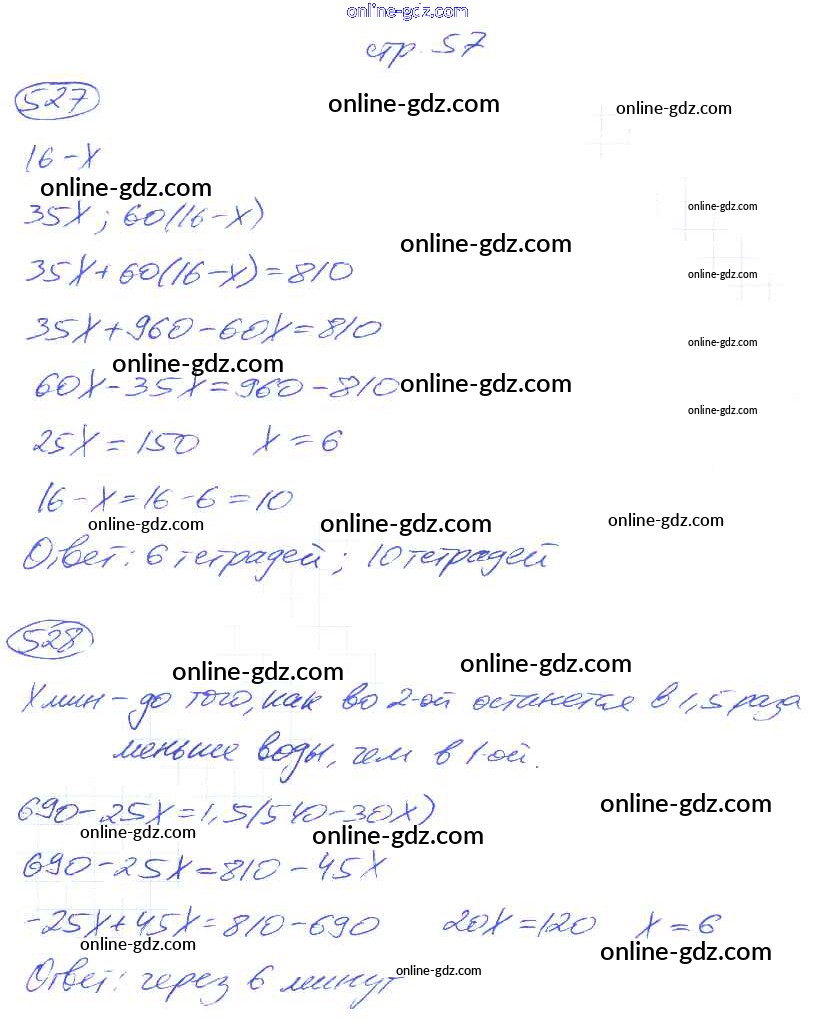 online-gdz.com
стр. 57
527
online-gdz.com
online-gdz.com
16-x
online-gdz.com
35x; 60(16-x)
online-gdz.com
online-gdz.com
35x+60(16-x)=810
online-gdz.com
35x+960-60x=810
online-gdz.com
online-gdz.com
60x-35x=960-810
online-gdz.com
online-gdz.com
25x=150 x=6
16-x=16-6=10
online-gdz.com
online-gdz.com
online-gdz.com
Ответ: 6 тетрадей; 10 тетрадей
528
online-gdz.com
online-gdz.com
X мин - до того, как во 2-ой останется в 1,5 раза
меньше воды, чем в 1-ой.
690-25x=1,5(540-30x)
online-gdz.com
online-gdz.com
online-gdz.com
690-25x=810-45x
-25x+45x=810-690 20x=120 x=6
online-gdz.com
online-gdz.com
Ответ: через 6 минут
online-gdz.com